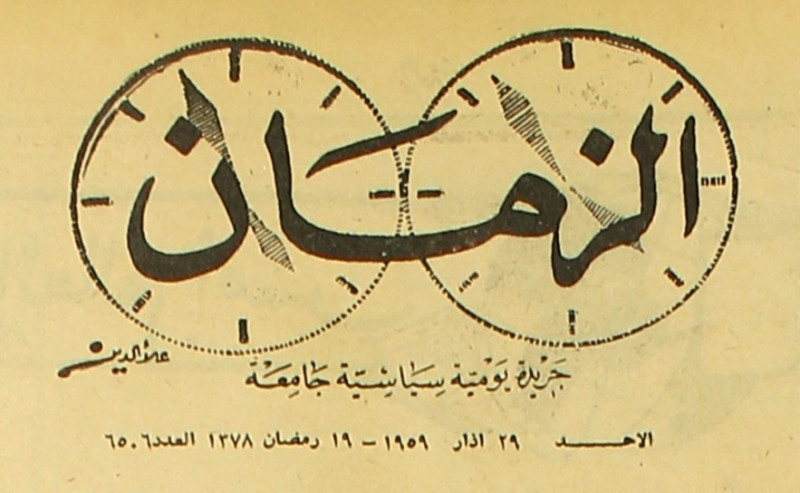 الزمان
علاءالدين
جَريدة يَوْميّة سِيَاسِيّة جَامِعَة
الاحـــد ٢٩ اذار ١٩٥٩ - ١٩ رمضان ١٣٧٨ العدد٦٥٠٦